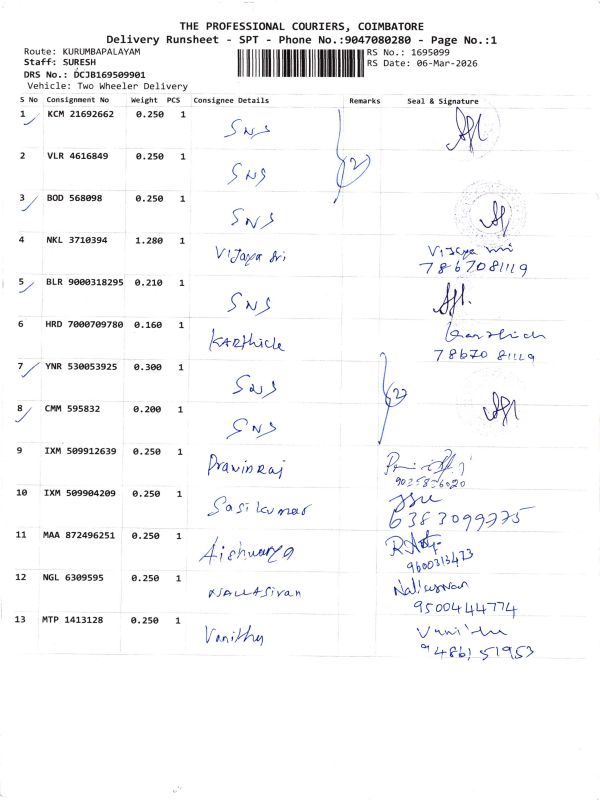 THE PROFESSIONAL COURIERS, COIMBATORE
Delivery Runsheet - SPT - Phone No.:9047080280 - Page No.:1
Route: KURUMBAPALAYAM RS No.: 1695099
Staff: SURESH RS Date: 06-Mar-2026
DRS No.: DCJB169509901
Vehicle: Two Wheeler Delivery
S No Consignment No Weight PCS Consignee Details Remarks Seal & Signature
1 KCM 21692662 0.250 1 SNS
2 VLR 4616849 0.250 1 SNS 2
3 BOD 568098 0.250 1 SNS
4 NKL 3710394 1.280 1 Vijaya Sri Vijaya Sri
7867081119
5 BLR 9000318295 0.210 1 SNS
6 HRD 7000709780 0.160 1 KARThick Karthick
78670 81119
7 YNR 530053925 0.300 1 SNS 2
8 CMM 595832 0.200 1 SNS
9 IXM 509912639 0.250 1 Pravinraj
10 IXM 509904209 0.250 1 Sasikumar
6383099775
11 MAA 872496251 0.250 1 Aishwarya
9600313473
12 NGL 6309595 0.250 1 NALLASivan
9500444774
13 MTP 1413128 0.250 1 Vanitha
9486151953